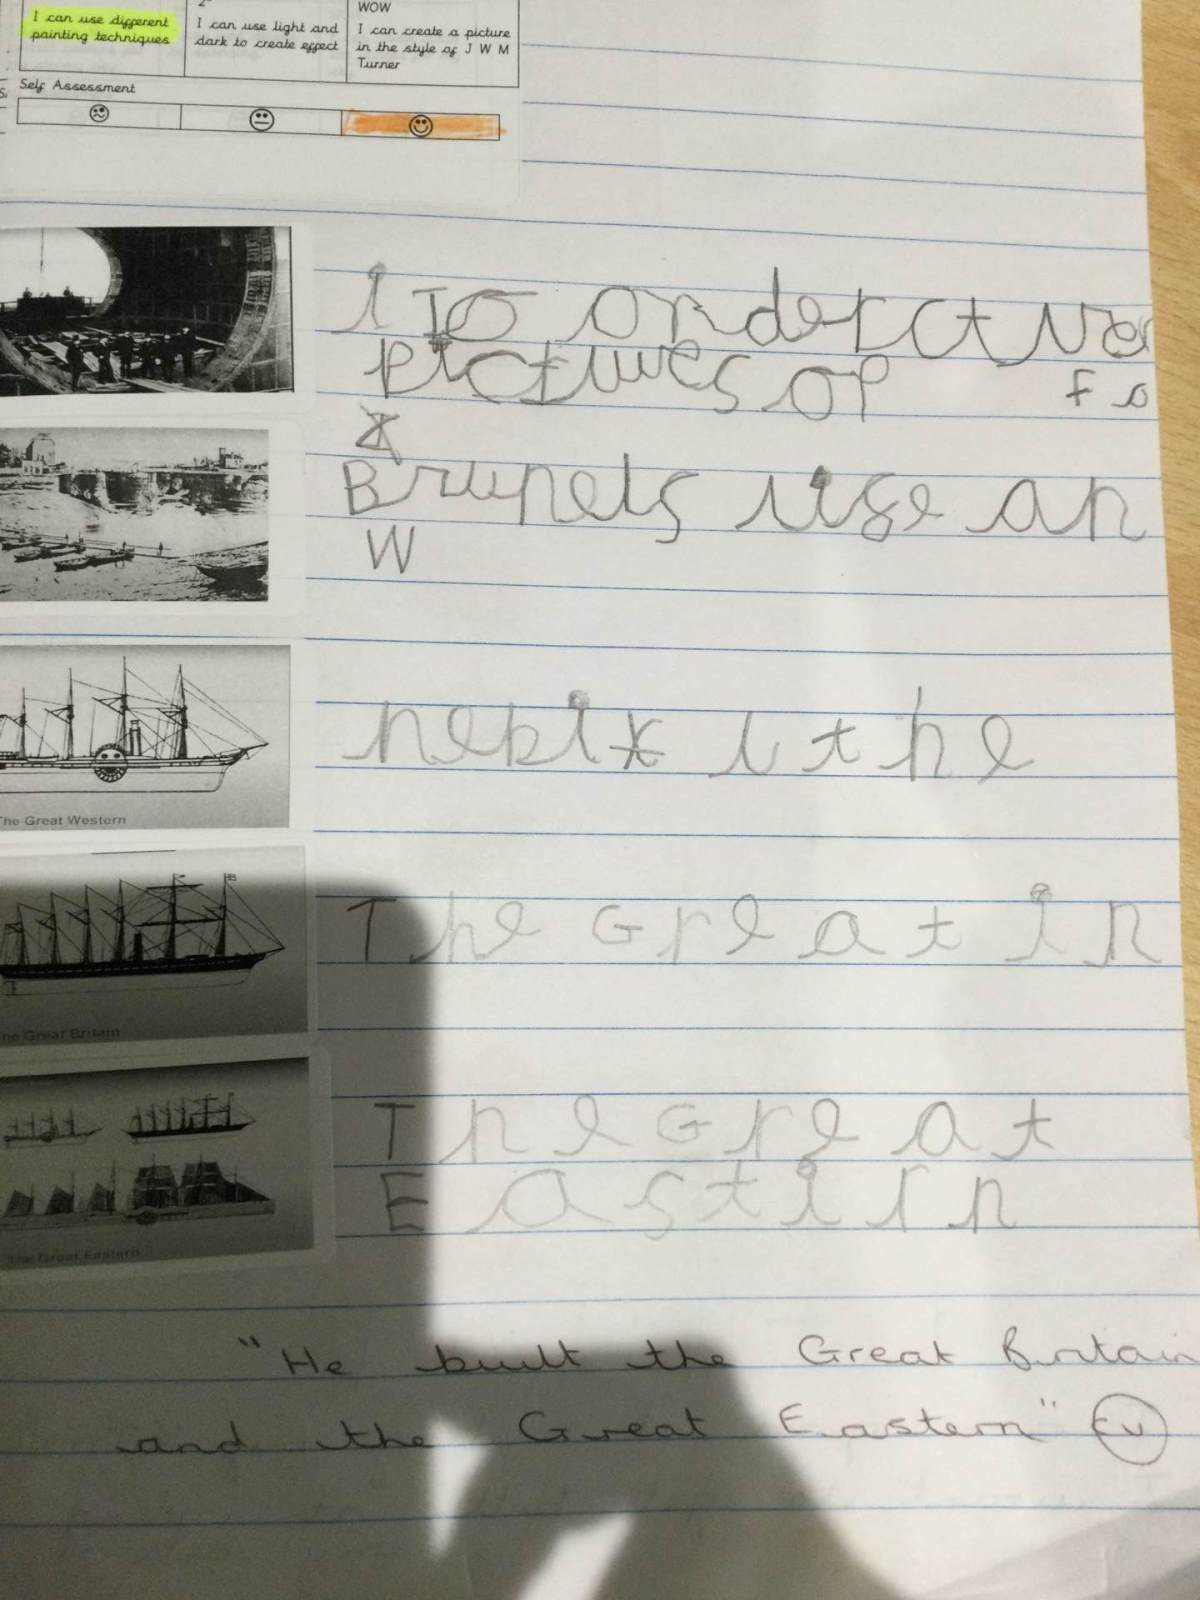 I can use different
painting techniques
2
I can use light and
dark to create effect
WOW
I can create a picture
in the style of J W M
Turner
Self Assessment
I To onderctu
pictures of Fo
Brunels rise an
W
hebix i the
The Great Western
The Great in
The Great Britain
The Great
Eastirn
The Great Eastern
"He built the Great Britain
and the Great Eastern" CV